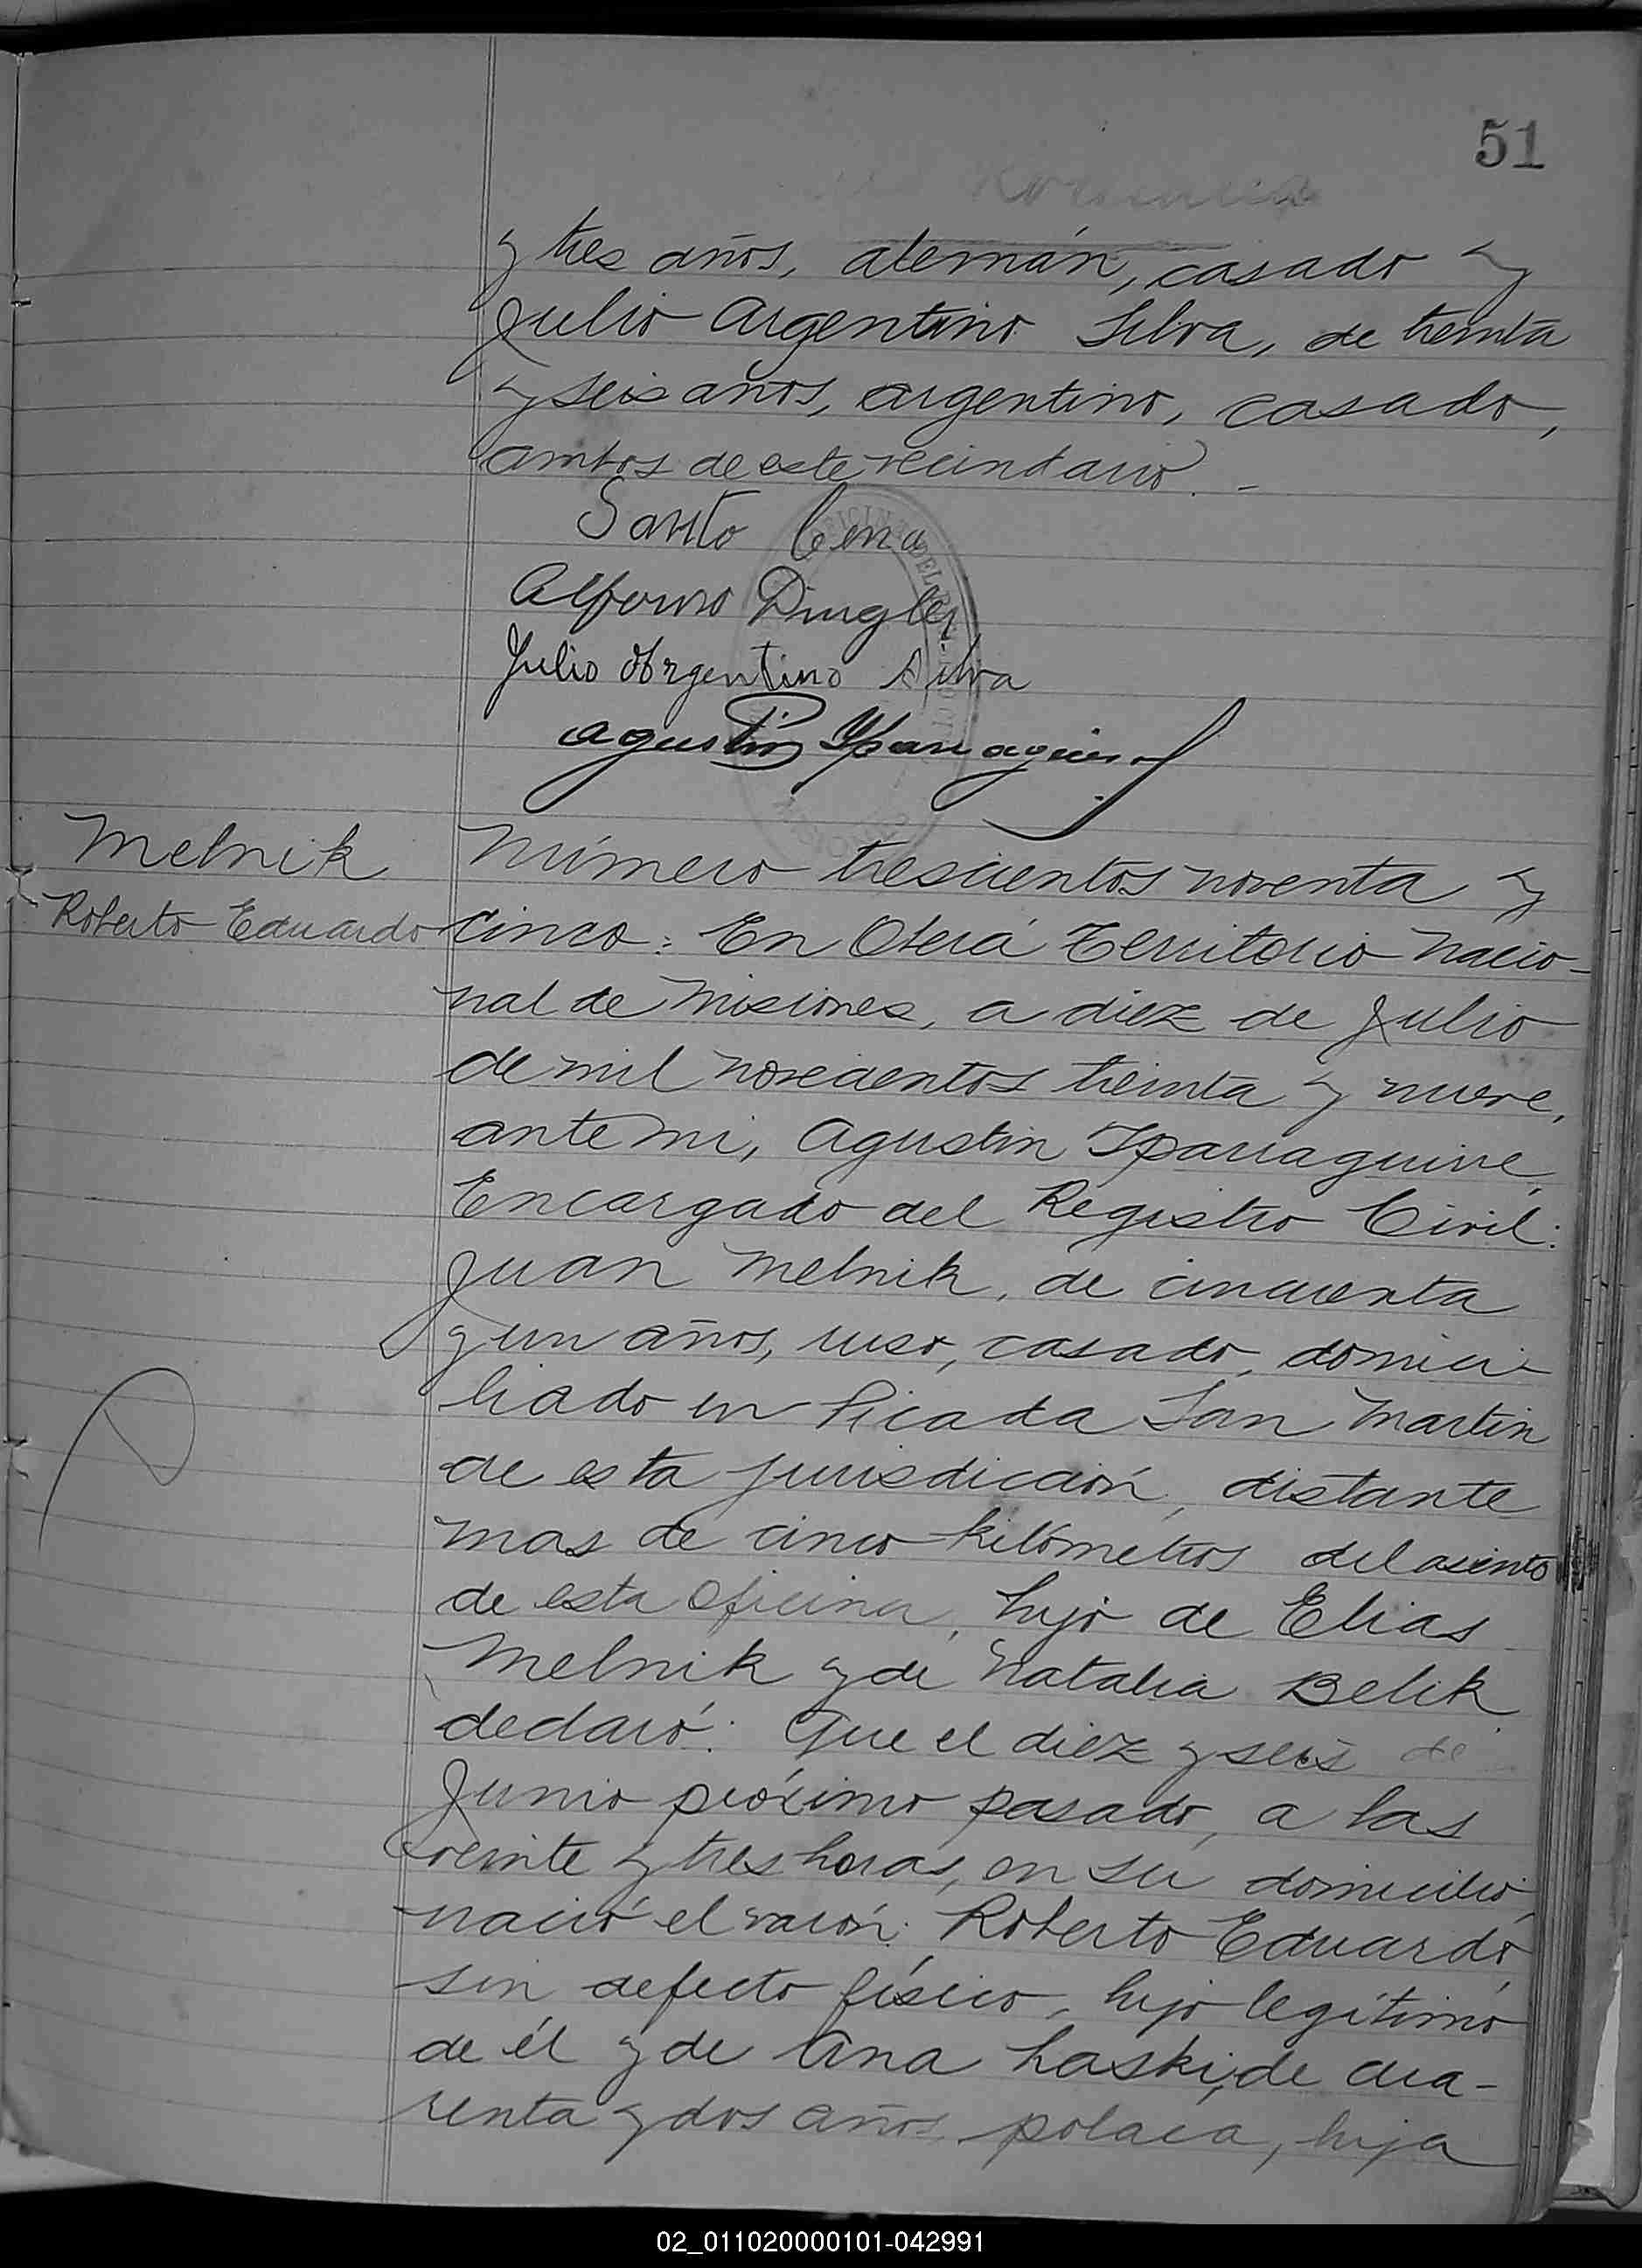 51
y tres años, alemán, casado y
Julio Argentino Silva, de treinta
y seis años, argentino, casado,
ambos de este vecindario. -
Santo Cena
Alfonso Dingler
Julio Argentino Silva
Agustin Yparraguirre
Melnik
Roberto Eduardo
Número trescientos noventa y
cinco: En Oberá Territorio Nacio-
nal de Misiones, a diez de Julio
de mil novecientos treinta y nueve,
ante mi, Agustin Yparraguirre,
Encargado del Registro Civil:
Juan Melnik, de cincuenta
y un años, ruso, casado, domici-
liado en Picada San Martin
de esta jurisdicción, distante
mas de cinco kilómetros del asiento
de esta Oficina, hijo de Elias
Melnik y de Natalia Belik
declaró: Que el diez y seis de
Junio próximo pasado, a las
veinte y tres horas, en su domicilio,
nació el varón: Roberto Eduardo,
sin defecto físico, hijo legítimo
de él y de Ana Laski, de cua-
renta y dos años, polaca, hija
02_011020000101-042991